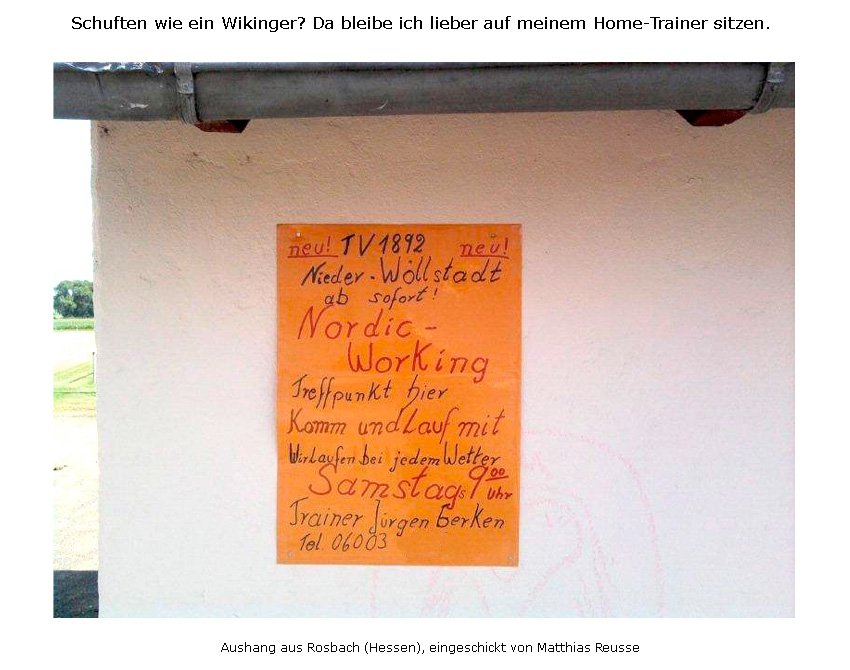 Schuften wie ein Wikinger? Da bleibe ich lieber auf meinem Home-Trainer sitzen.
neu! TV 1892 neu!
Nieder-Wöllstadt
ab sofort!
Nordic-
Working
Treffpunkt hier
Komm und Lauf mit
Wir Laufen bei jedem Wetter
Samstags 9 00 Uhr
Trainer Jürgen Gerken
Tel. 06003
Aushang aus Rosbach (Hessen), eingeschickt von Matthias Reusse